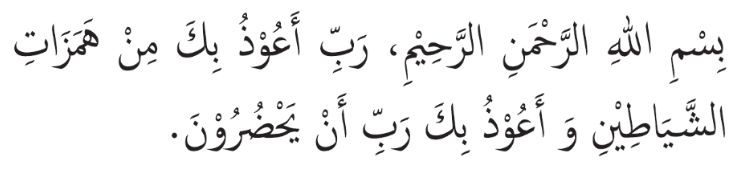 بِسْمِ اللهِ الرَّحْمَنِ الرَّحِيْمِ، رَبِّ أَعُوْذُ بِكَ مِنْ هَمَزَاتِ
الشَّيَاطِيْنِ وَ أَعُوْذُ بِكَ رَبِّ أَنْ يَحْضُرُوْنَ.